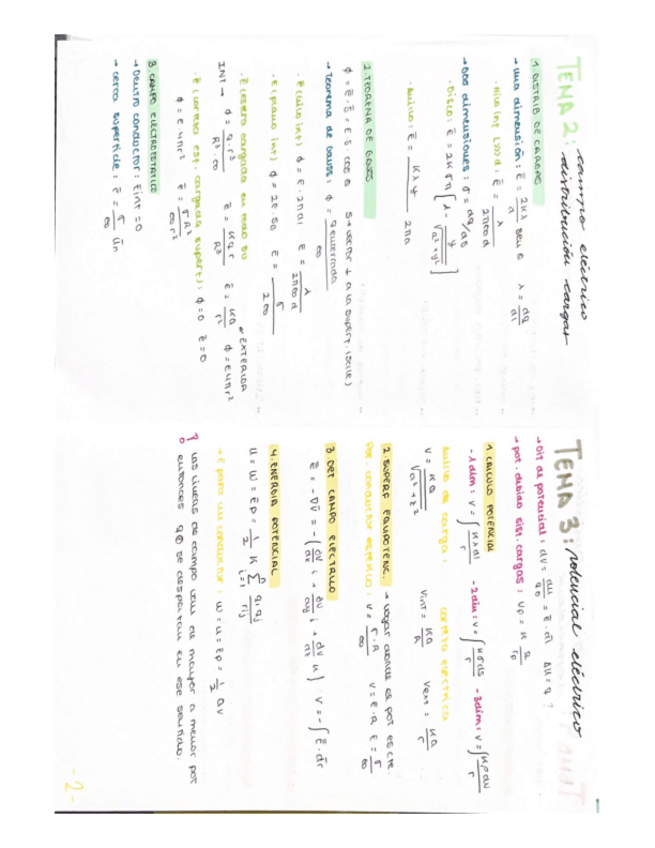 TEMA 2: campo eléctrico
distribución cargas
1. DISTRIB DE CARGAS
→ una dimensión: E = 2Kλ/a sen θ   λ = dq/dl
· Hilo int (>>>) d: E = λ/2πε0 d
→ Dos dimensiones: σ = dq/ds
· Disco: E = 2Kσπ [1 - y/√a²+y²]
· Anillo: E = Kλy 2πa
2. TEOREMA DE GAUSS
ϕ = E · S = E · S · cos θ   S → vector ⊥ a la superf. (selle)
→ Teorema de Gauss: ϕ = q encerrada/ε0
· E (hilo int) ϕ = E · 2πdl   E = λ/2πε0 d
· E (plano int) ϕ = 2E · S0   E = σ/2ε0
· E (esfera cargada en todo su
INT → ϕ = q · r³/R³ · ε0   E = KQr/R³   E = KQ/r²   ϕ = E4πr²   EXTERIOR
· E (corteza esf. cargada superf): ϕ = 0   E = 0
ϕ = E · 4πr²   E = σR²/ε0 r²
3. CAMPO ELECTROSTATICO
→ Dentro conductor: Eint = 0
→ cerca superficie: E = σ/ε0 ūn
TEMA 3: potencial eléctrico
→ Dif de potencial: dV = dU/q0 = E · dl   ΔU = q ?
→ pot. debido sist. cargas: Vp = K q/rp
1. CALCULO POTENCIAL
- 1 dim: V = ∫ Kλdl/r   - 2 dim: V = ∫ Kσds/r   - 3 dim: V = ∫ Kρdv/r
Anillo de carga:   corteza electrica
V = KQ/√a²+z²   Vint = KQ/R   Vext = KQ/r
2. SUPERF EQUIPOTENC. → lugar donde el pot es cte.
Pot. conductor esférico: V = σ·R/ε0   V = E·R   E = σ/ε0
3 DET CAMPO ELECTRICO
E = -∇V = -(∂V/∂x i + ∂V/∂y j + ∂V/∂z K)   V = -∫ E · dr
4. ENERGIA POTENCIAL
U = W = Ep = 1/2 K Σ n i=1 qi qj/rij
→ E para un conductor: W = U = Ep = 1/2 QV
las lineas de campo van de mayor a menor pot
entonces q⊕ se desplazan en ese sentido.
-2-